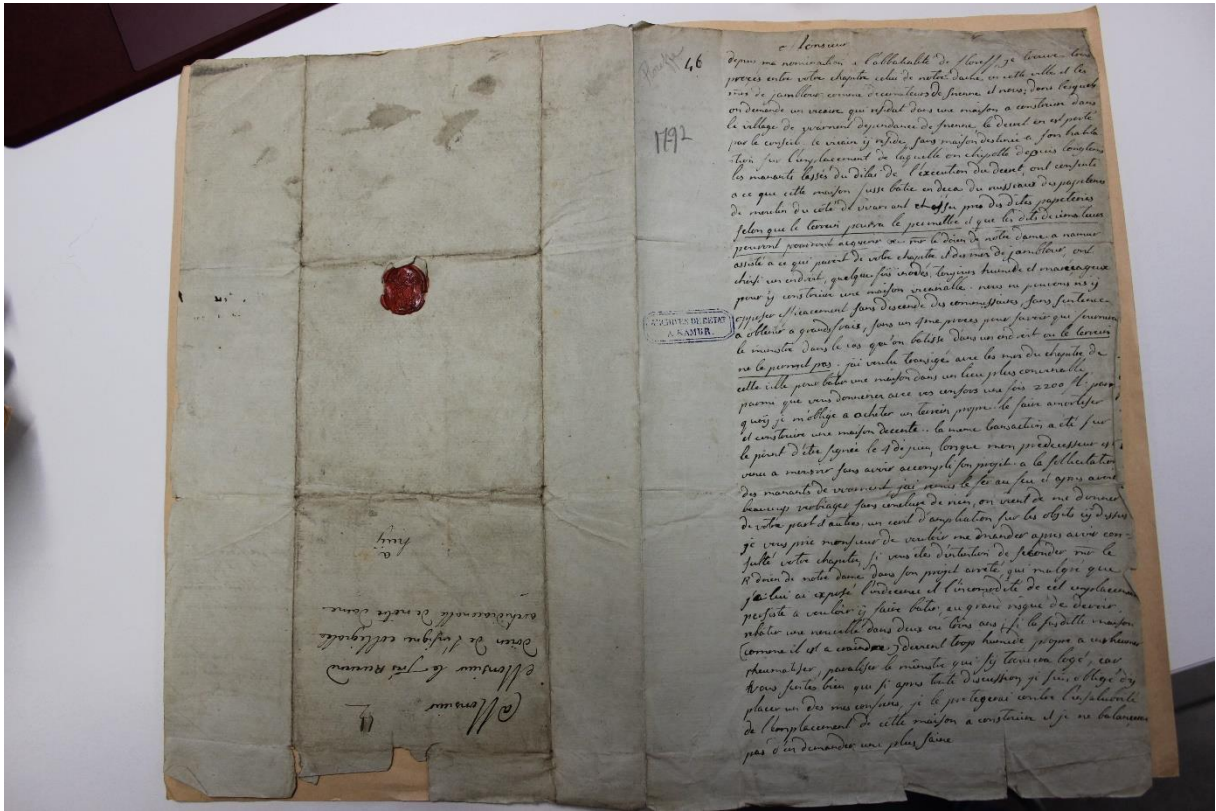 Floreffe
46
1792
ARCHIVES DE L'ETAT
A NAMUR.
Monsieur
depuis ma nomination a l'abbatialité de floreff, je trouve trois
procés entre votre chapitre celui de notre dame en cette ville et les
mrs de jamblour comme decimateurs de frienne et nous; dans lesquels
on demande un vicaire qui residat dans une maison a construire dans
le village de vivarmont dependance de frienne. le decret en est porté
par le conseil. le vicaire y reside, sans maison destinée a son habita
tion sur l'emplacement de laquelle on chipotte depuis longtems
les manants lassés du délai de l'execution du decret, ont consenti
a ce que cette maison fusse batie en deca du ruisseaux des papeteries
de moulin du côté de et assez près des dites papeteries
selon que le terrein pourra le permettre et que les dits decimateurs
peuvent pouvoient acquerir mr le doien de notre dame a namur
assisté a ce qui paroit de votre chapitre et des mrs de jamblour, ont
choisi un endroit, quelque fois inondé, toujours humide et marécageux
pour y construire une maison vicariale. nous ne pouvons ns y
opposer efficacement sans descende des commissaires, sans sentence
a obtenir a grands frais, sans un 4me proces pour savoir qui fournira
le ministre dans le cas qu'on batisse dans un endroit ou le terrein
ne le permet pas. j'ai voulu transiger avec les mrs du chapitre de
cette ville pour batir une maison dans un lieu plus convenable
parmi que vous donneriez avec vos consors une fois 2200 fl. parmi
quoi je m'oblige a acheter un terrein propre. le faire amortiser
et construire une maison decente. la meme transaction a été sur
le point d'etre signée le 4 de juin, lorsque mon predecesseur est
venu a mourir sans avoir accompli son projet. a la sollicitation
des manants de j'ai remis le fer au feu et apres avoir
beaucoup verbiager sans conclure de rien, on vient de me donner
de votre part d'autres, un ecrit d'ampliation sur les objets cy dessus
je vous prie monsieur de vouloir me mander apres avoir con-
sulté votre chapitre, si vous etes d'intention de seconder mr le
doien de notre dame dans son projet arreté qui malgré que
je lui ai exposé l'indecence et l'incomodité de cet emplacement
persiste a vouloir y faire batir, en grand risque de devoir
rebatir une nouvelle dans deux ou trois ans; si la susditte maison
(comme il est a craindre) devient trop humide propre a
rheumatiser, paraliser le ministre qui s'y trouvera logé, car
vous sentes bien que si apres toute discussion je suis obligé d'y
placer un des mes confrers, je le protegerai contre l'insaluberté
de l'emplacement de cette maison a construire et je ne balancerai
pas d'en demander une plus saine
a Monsieur
Monsieur le
doien de l'insigne collegialle
archidiaconalle de notre dame
a
huy